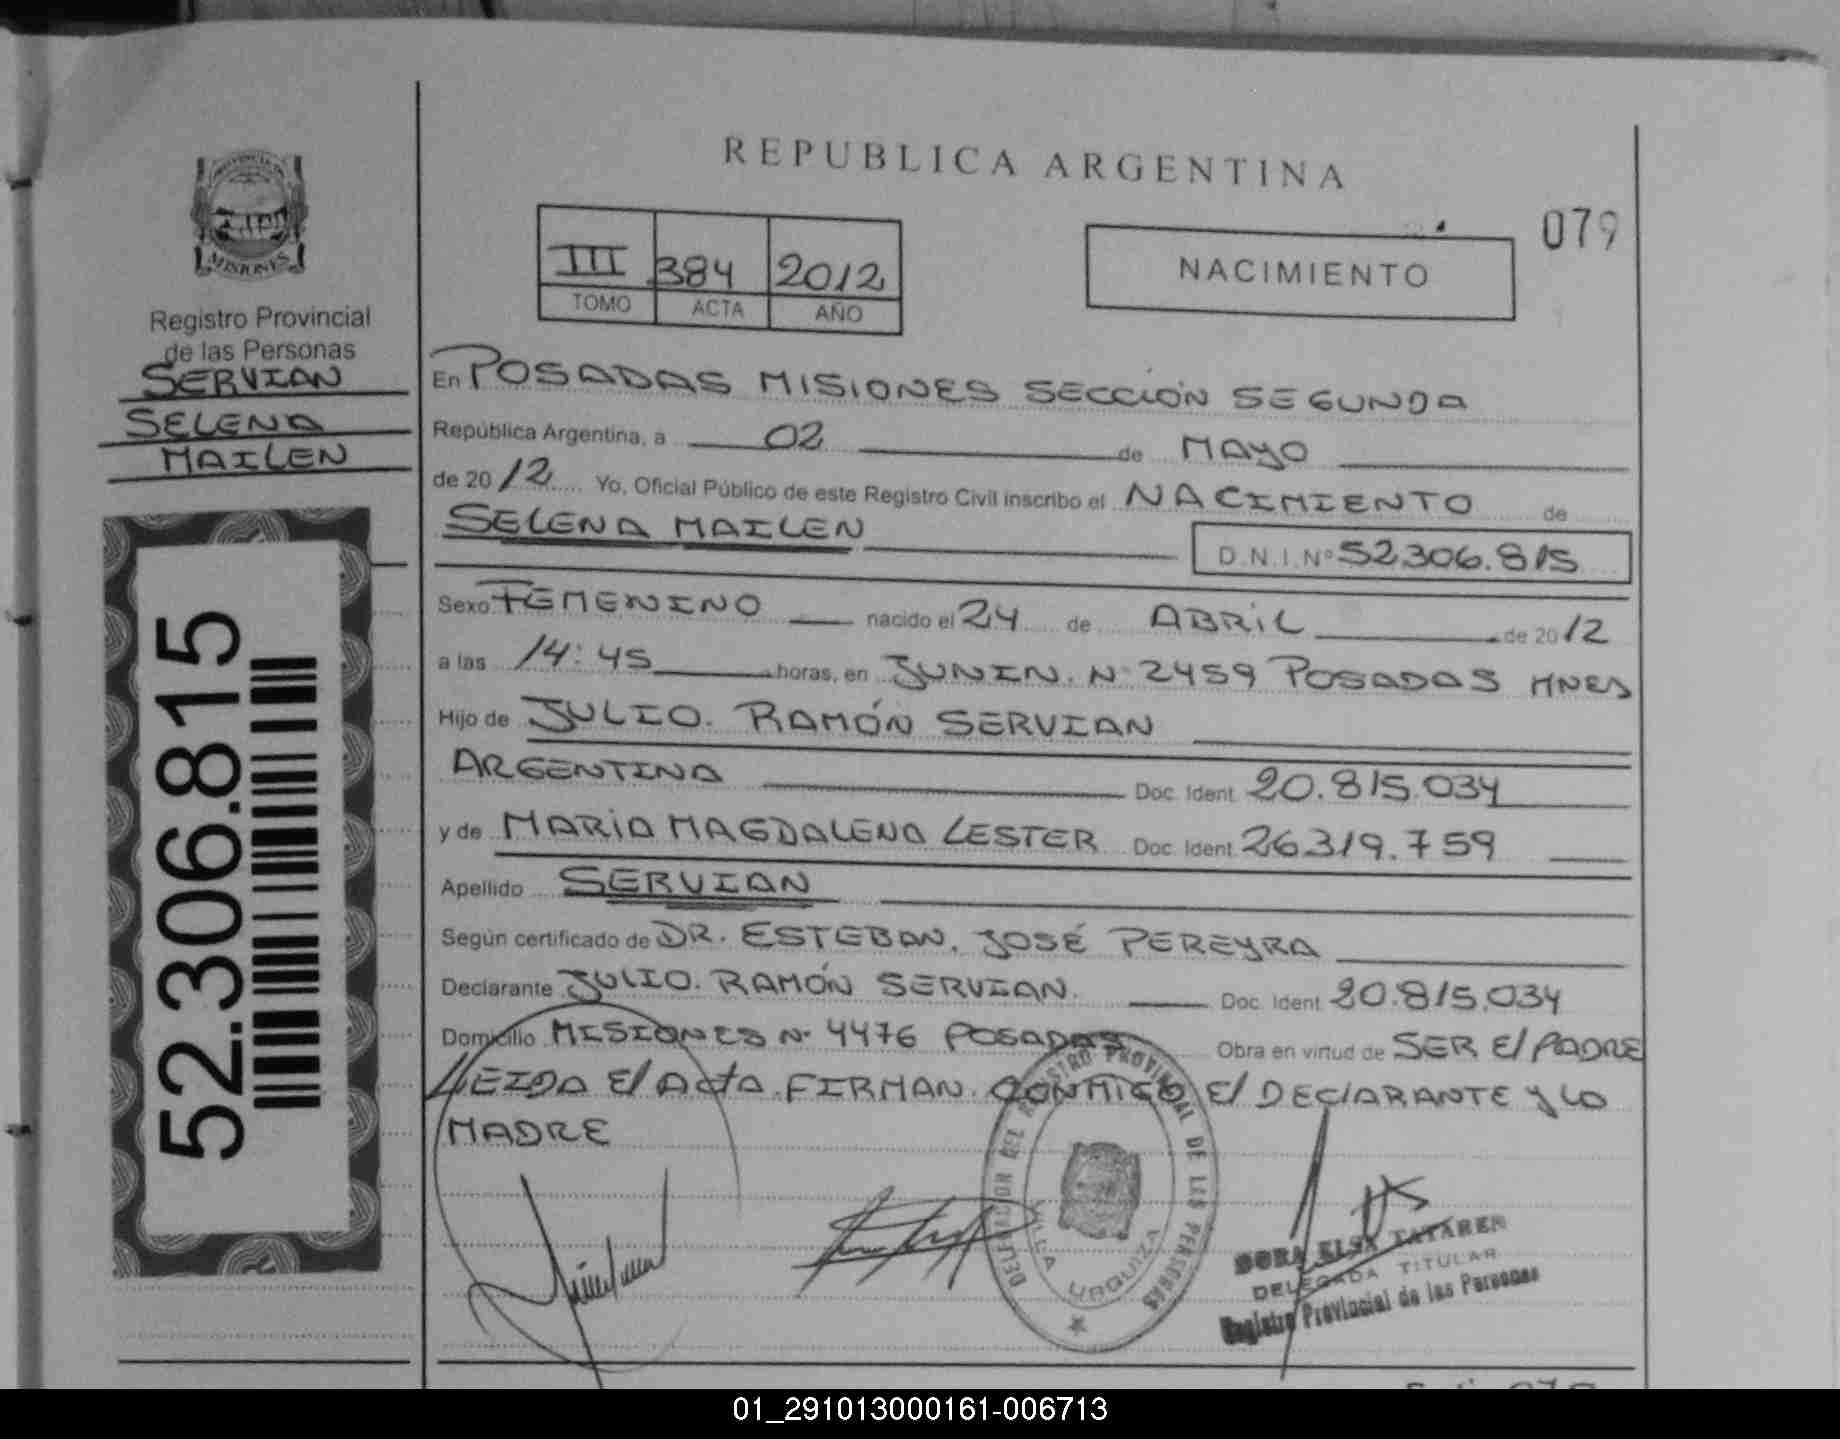 REPUBLICA ARGENTINA
PROVINCIA DE
MISIONES
Registro Provincial
de las Personas
SERVIAN
SELENA
MAILEN
52.306.815
III 384 2012
TOMO ACTA AÑO
NACIMIENTO
079
En POSADAS MISIONES SECCIÓN SEGUNDA
República Argentina, a 02 de MAYO
de 2012 Yo, Oficial Público de este Registro Civil inscribo el NACIMIENTO de
SELENA MAILEN D.N.I. Nº 52.306.815
Sexo FEMENINO nacido el 24 de ABRIL de 2012
a las 14:45 horas, en JUNIN. Nº 2459 POSADAS MNES
Hijo de JULIO. RAMÓN SERVIAN
ARGENTINA Doc. Ident. 20.815.034
y de MARIA MAGDALENA LESTER Doc. Ident. 26319.759
Apellido SERVIAN
Según certificado de DR. ESTEBAN. JOSÉ PEREYRA
Declarante JULIO. RAMÓN SERVIAN. Doc. Ident. 20.815.034
Domicilio MISIONES Nº 4476 POSADAS Obra en virtud de SER El PADRE
LEIDA El ACTA. FIRMAN. CONMIGO El DEClARANTE y LA
MADRE
DELEGACION DEL REGISTRO PROVINCIAL DE LAS PERSONAS
VILLA URQUIZA
DORA ELSA
DELEGADA TITULAR
Registro Provincial de las Personas
01_291013000161-006713